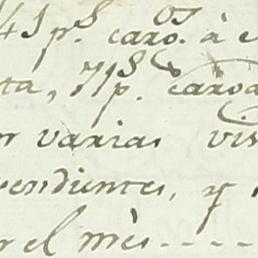 41 p.s caros. à
ta, 71 p.s caroa
varias vis
pendientes, y
r el mès - - - -